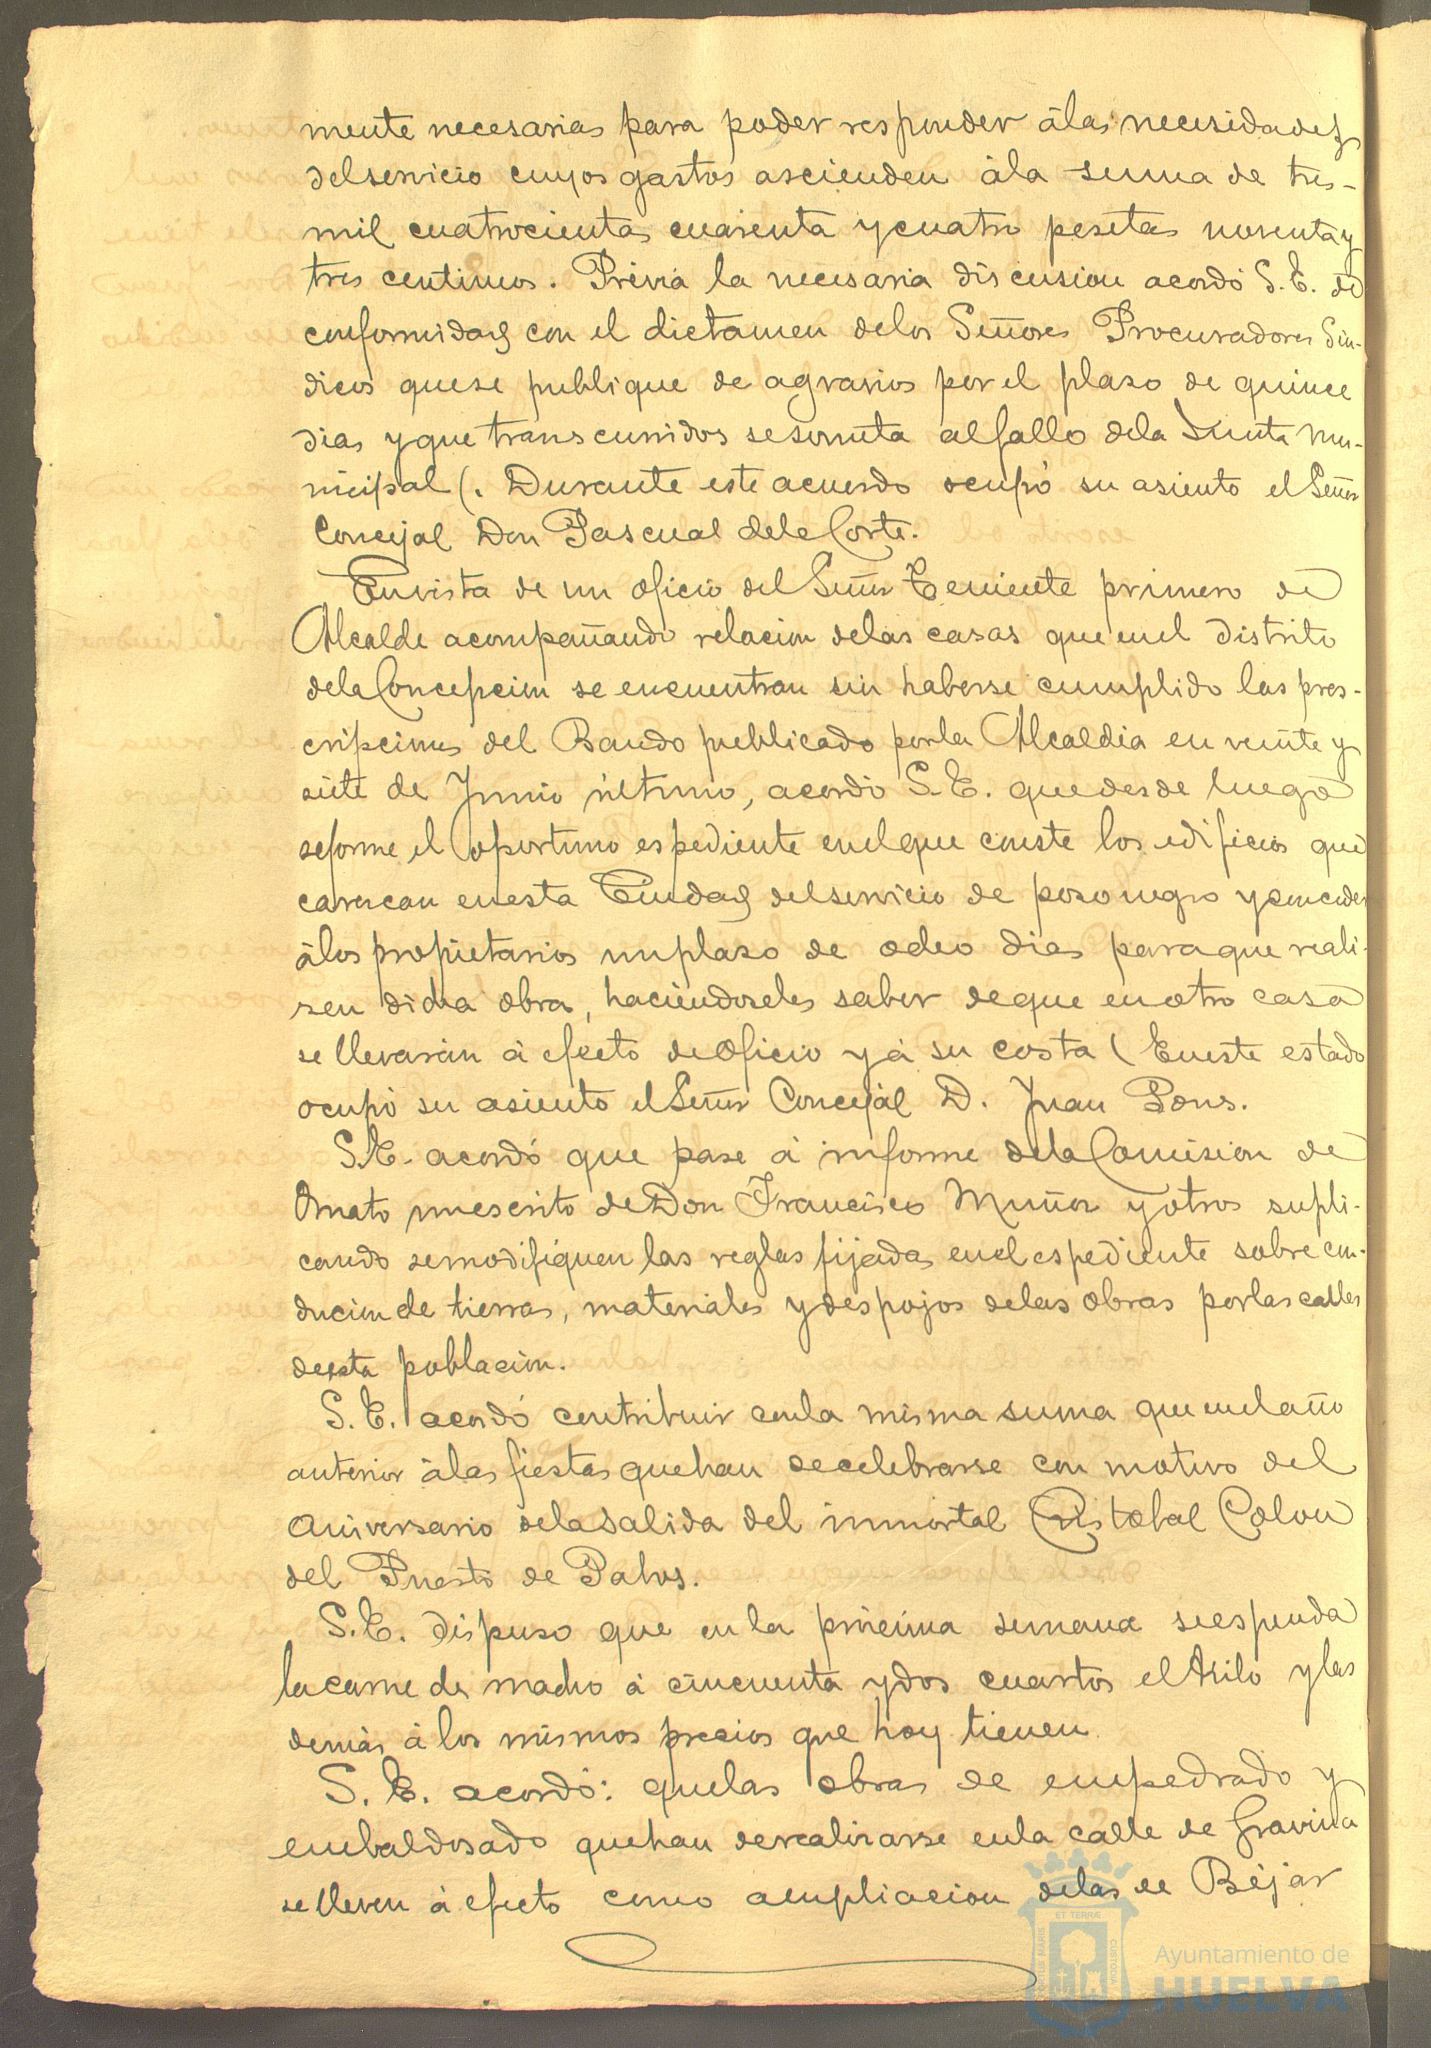 mente necesarias para poder responder á las necesidades
del servicio cuyos gastos ascienden á la suma de tres-
mil cuatrocientas cuarenta y cuatro pesetas noventa y
tres centimos. Prévia la necesaria discusion acordó S.E. de
conformidad con el dictamen de los Señores Procuradores Sin-
dicos que se publique de agravios por el plaso de quince
dias y que transcurridos se someta al fallo de la Junta Mu-
nicipal (. Durante este acuerdo ocupó su asiento el Señor
Concejal Don Pascual de la Corte.
En vista de un oficio del Señor Teniente primero de
Alcalde acompañando relacion de las casas que en el distrito
de la Concepcion se encuentran sin haberse cumplido las pres-
cripciones del Bando publicado por la Alcaldia en veinte y
siete de Junio último, acordó S.E. que desde luego
se forme el oportuno espediente en el que conste los edificios que
carescan en esta Ciudad del servicio de poso negro y conceder
á los propietarios un plaso de ocho dias para que reali-
sen dicha obra, haciendoseles saber de que en otro caso
se llevarán á efecto de oficio y á su costa ( En este estado
ocupó su asiento el Señor Concejal D. Juan Pons.
S.E. acordó que pase á informe de la Comision de
Ornato un escrito de Don Francisco Muñoz y otros supli-
cando se modifiquen las reglas fijadas en el espediente sobre con-
ducion de tierras, materiales y despojos de las obras por las calles
de esta poblacion.
S.E. acordó contribuir con la misma suma que en el año
anterior á las fiestas que han de celebrarse con motivo del
aniversario de la salida del inmortal Cristobal Colon
del Puerto de Palos.
S.E. dispuso que en la prócima semana se espenda
la carne de macho á cincuenta y dos cuartos el kilo y las
demás á los mismos precios que hoy tienen.
S.E. acordó: que las obras de empedrado y
embaldosado que han de realizarse en la calle de Gravina
se lleven á efecto como ampliacion de las de Béjar
Ayuntamiento de
HUELVA